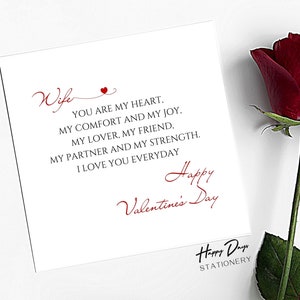 Wife
YOU ARE MY HEART,
MY COMFORT AND MY JOY,
MY LOVER, MY FRIEND,
MY PARTNER AND MY STRENGTH.
I LOVE YOU EVERYDAY
Happy
Valentine's Day
Happy Days
STATIONERY